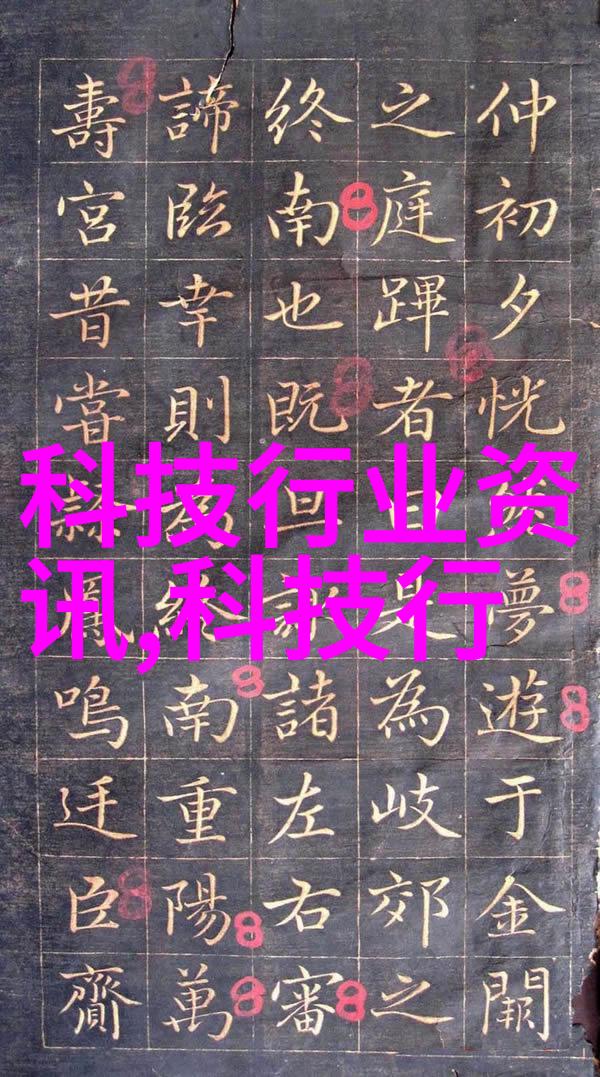 科技行业资
讯,科技行
仲初夕恍夢遊于金闕
之庭蹕者曰是為岐郊之
終南也既回諸左右審
諦臨幸則為終南重陽萬
壽宮昔嘗鳴迂臣齎